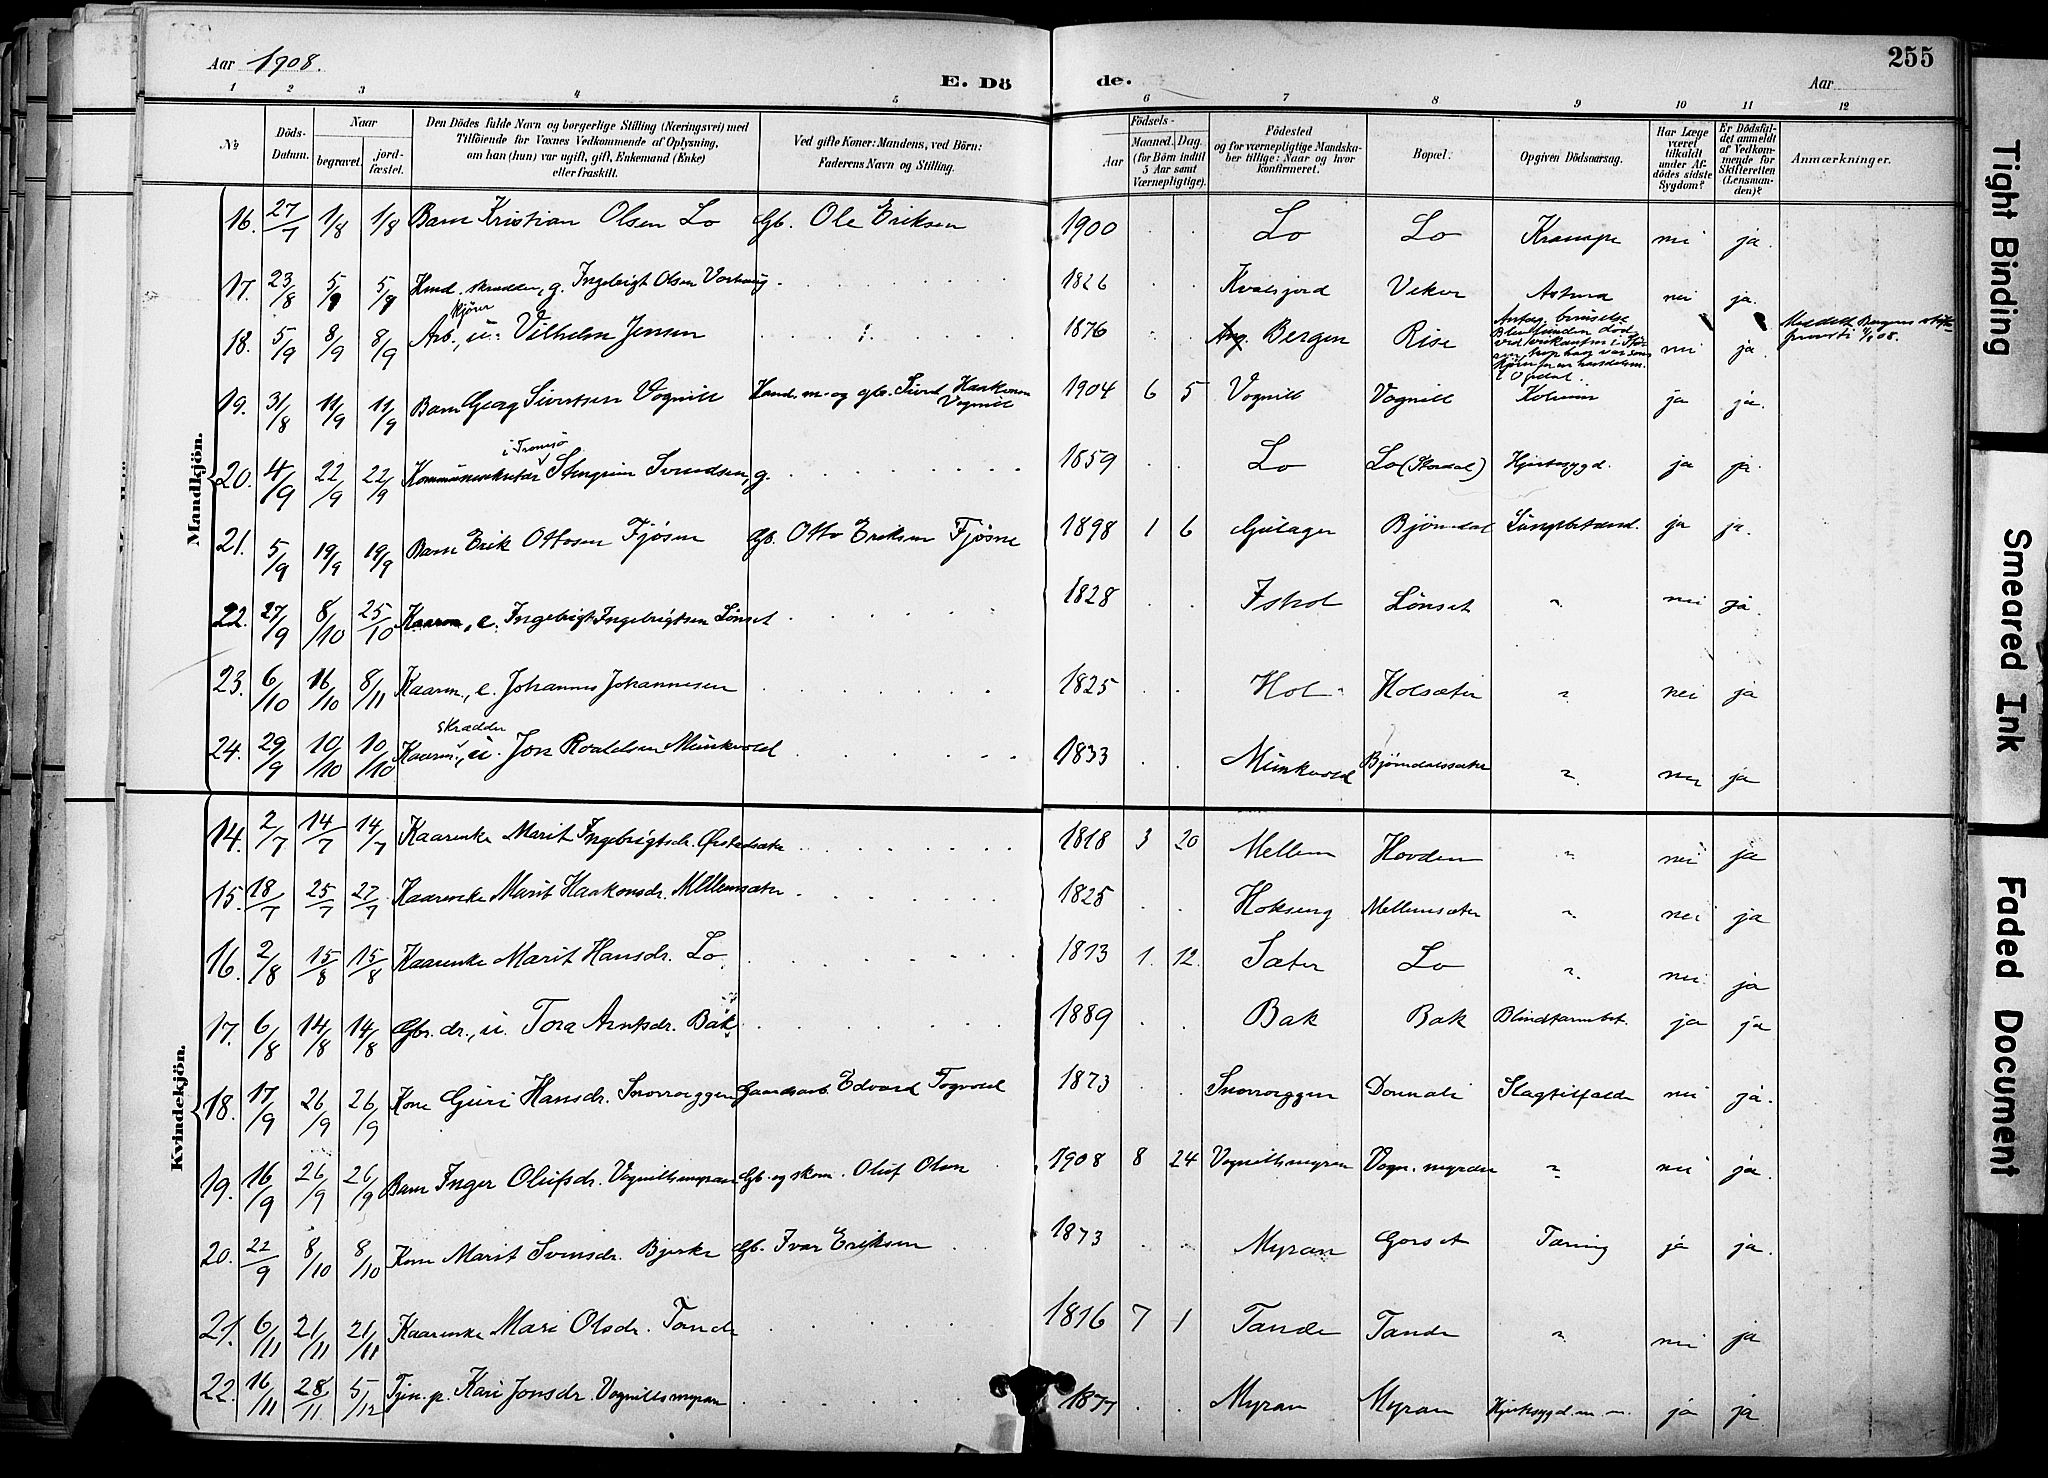 Aar 1908.
E. Dö
de.
Aar
255
1 2 3 4 5 6 7 8 9 10 11 12
№
Döds-Datum.
Naar
begravet.
jord-fæstet.
Den Dödes fulde Navn og borgerlige Stilling (Næringsvei) med
Tilföiende for Voxnes Vedkommende af Oplysning,
om han (hun) var ugift, gift, Enkemand (Enke)
eller fraskilt.
Ved gifte Koner: Mandens, ved Börn:
Faderens Navn og Stilling.
Födsels-
Aar
Maaned. Dag.
(for Börn indtil
5 Aar samt
Værnepligtige).
Födested
og for værnepligtige Mandska-
ber tillige: Naar og hvor
konfirmeret.
Bopæl.
Opgiven Dödsaarsag.
Har Læge
været
tilkaldt
under Af-
dödes sidste
Sygdom?
Er Dödsfal-
det anmeldt
af Vedkom-
mende for
Skifteretten
(Lensman-
den)?
Anmærkninger.
Mandkjön.
16. 27/7 1/8 1/8 Barn Kristian Olsen Lo Gb. Ole Eriksen 1900 Lo Lo Krampe nei ja.
17. 23/8 5/9 5/9 skrædder, g. Ingebrigt Olsen 1826 Veker nei ja.
kjører
18. 5/9 8/9 8/9 Arb., u. Vilhelm Jensen 1876 Bergen Rise nei ja.
19. 31/8 11/9 11/9 Barn Georg Sivertsen Vognill Hand.m. og gbr. Sivert Haakonsen Vognill 1904 6 5 Vognill Vognill ja ja.
i Tromsö
20. 4/9 22/9 22/9 Stengrim Svendsen, g. 1859 Lo Lo (Stordal) Hjertesygd. ja ja.
21. 5/9 19/9 19/9 Barn Erik Ottosen Fjøsne Gb. Otto Eriksen Fjøsne 1898 1 6 Gulager Bjørndal Lungebetænd. ja ja.
22. 27/9 8/10 25/10 Kaarm., e. Ingebrigt Ingebrigtsen Lønset 1828 Ishol Lønset " nei ja.
23. 6/10 16/10 8/11 Kaarm., e. Johannes Johannesen 1825 Hol Holsæter " nei ja
skrædder
24. 29/9 10/10 10/10 Kaarm., u. Jon Roaldsen Munkvold 1833 Munkvold Bjørndalssæter " nei ja
Kvindekjön.
14. 2/7 14/7 14/7 Kaarenke Marit Ingebrigtsdr. Ørstadsæter 1818 3 20 Mellem Hovden " nei ja
15. 18/7 25/7 27/7 Kaarenke Marit Haakonsdr. Mellemsæter 1825 Hokseng Mellemsæter " nei ja
16. 2/8 15/8 15/8 Kaarenke Marit Hansdr. Lo 1813 1. 12. Sæter Lo " nei ja
17. 6/8 14/8 14/8 Gbr. dr., u. Tora Arntsdr. Bak 1889 Bak Bak Blindtarmbet. ja ja
18. 17/9 26/9 26/9 Kone Guri Hansdr. Snoroeggen Gaardsarb. Edvard Togvold 1873 Snoroeggen Donnali Slagtilfælde nei ja.
19. 16/9 26/9 26/9 Barn Inger Olufsdr. Vognillsmyran Gb. og skom. Oluf Olsen 1908 8 24 Vognillsmyran Vogn. myran " nei ja.
20. 22/9 8/10 8/10 Kone Marit Svensdr. Bjerke Gb. Ivar Eriksen 1873 Myran Gorset Tæring ja ja.
21. 6/11 21/11 21/11 Kaarenke Mari Olsdr. Tande 1816 7 1 Tande Tande " nei ja
22. 16/11 28/11 5/12 Tjen. p. Kari Jonsdr. Vognillsmyran 1877 Myran Myran Hjertesygd. m. m. ja ja.
Tight Binding
Smeared Ink
Faded Document